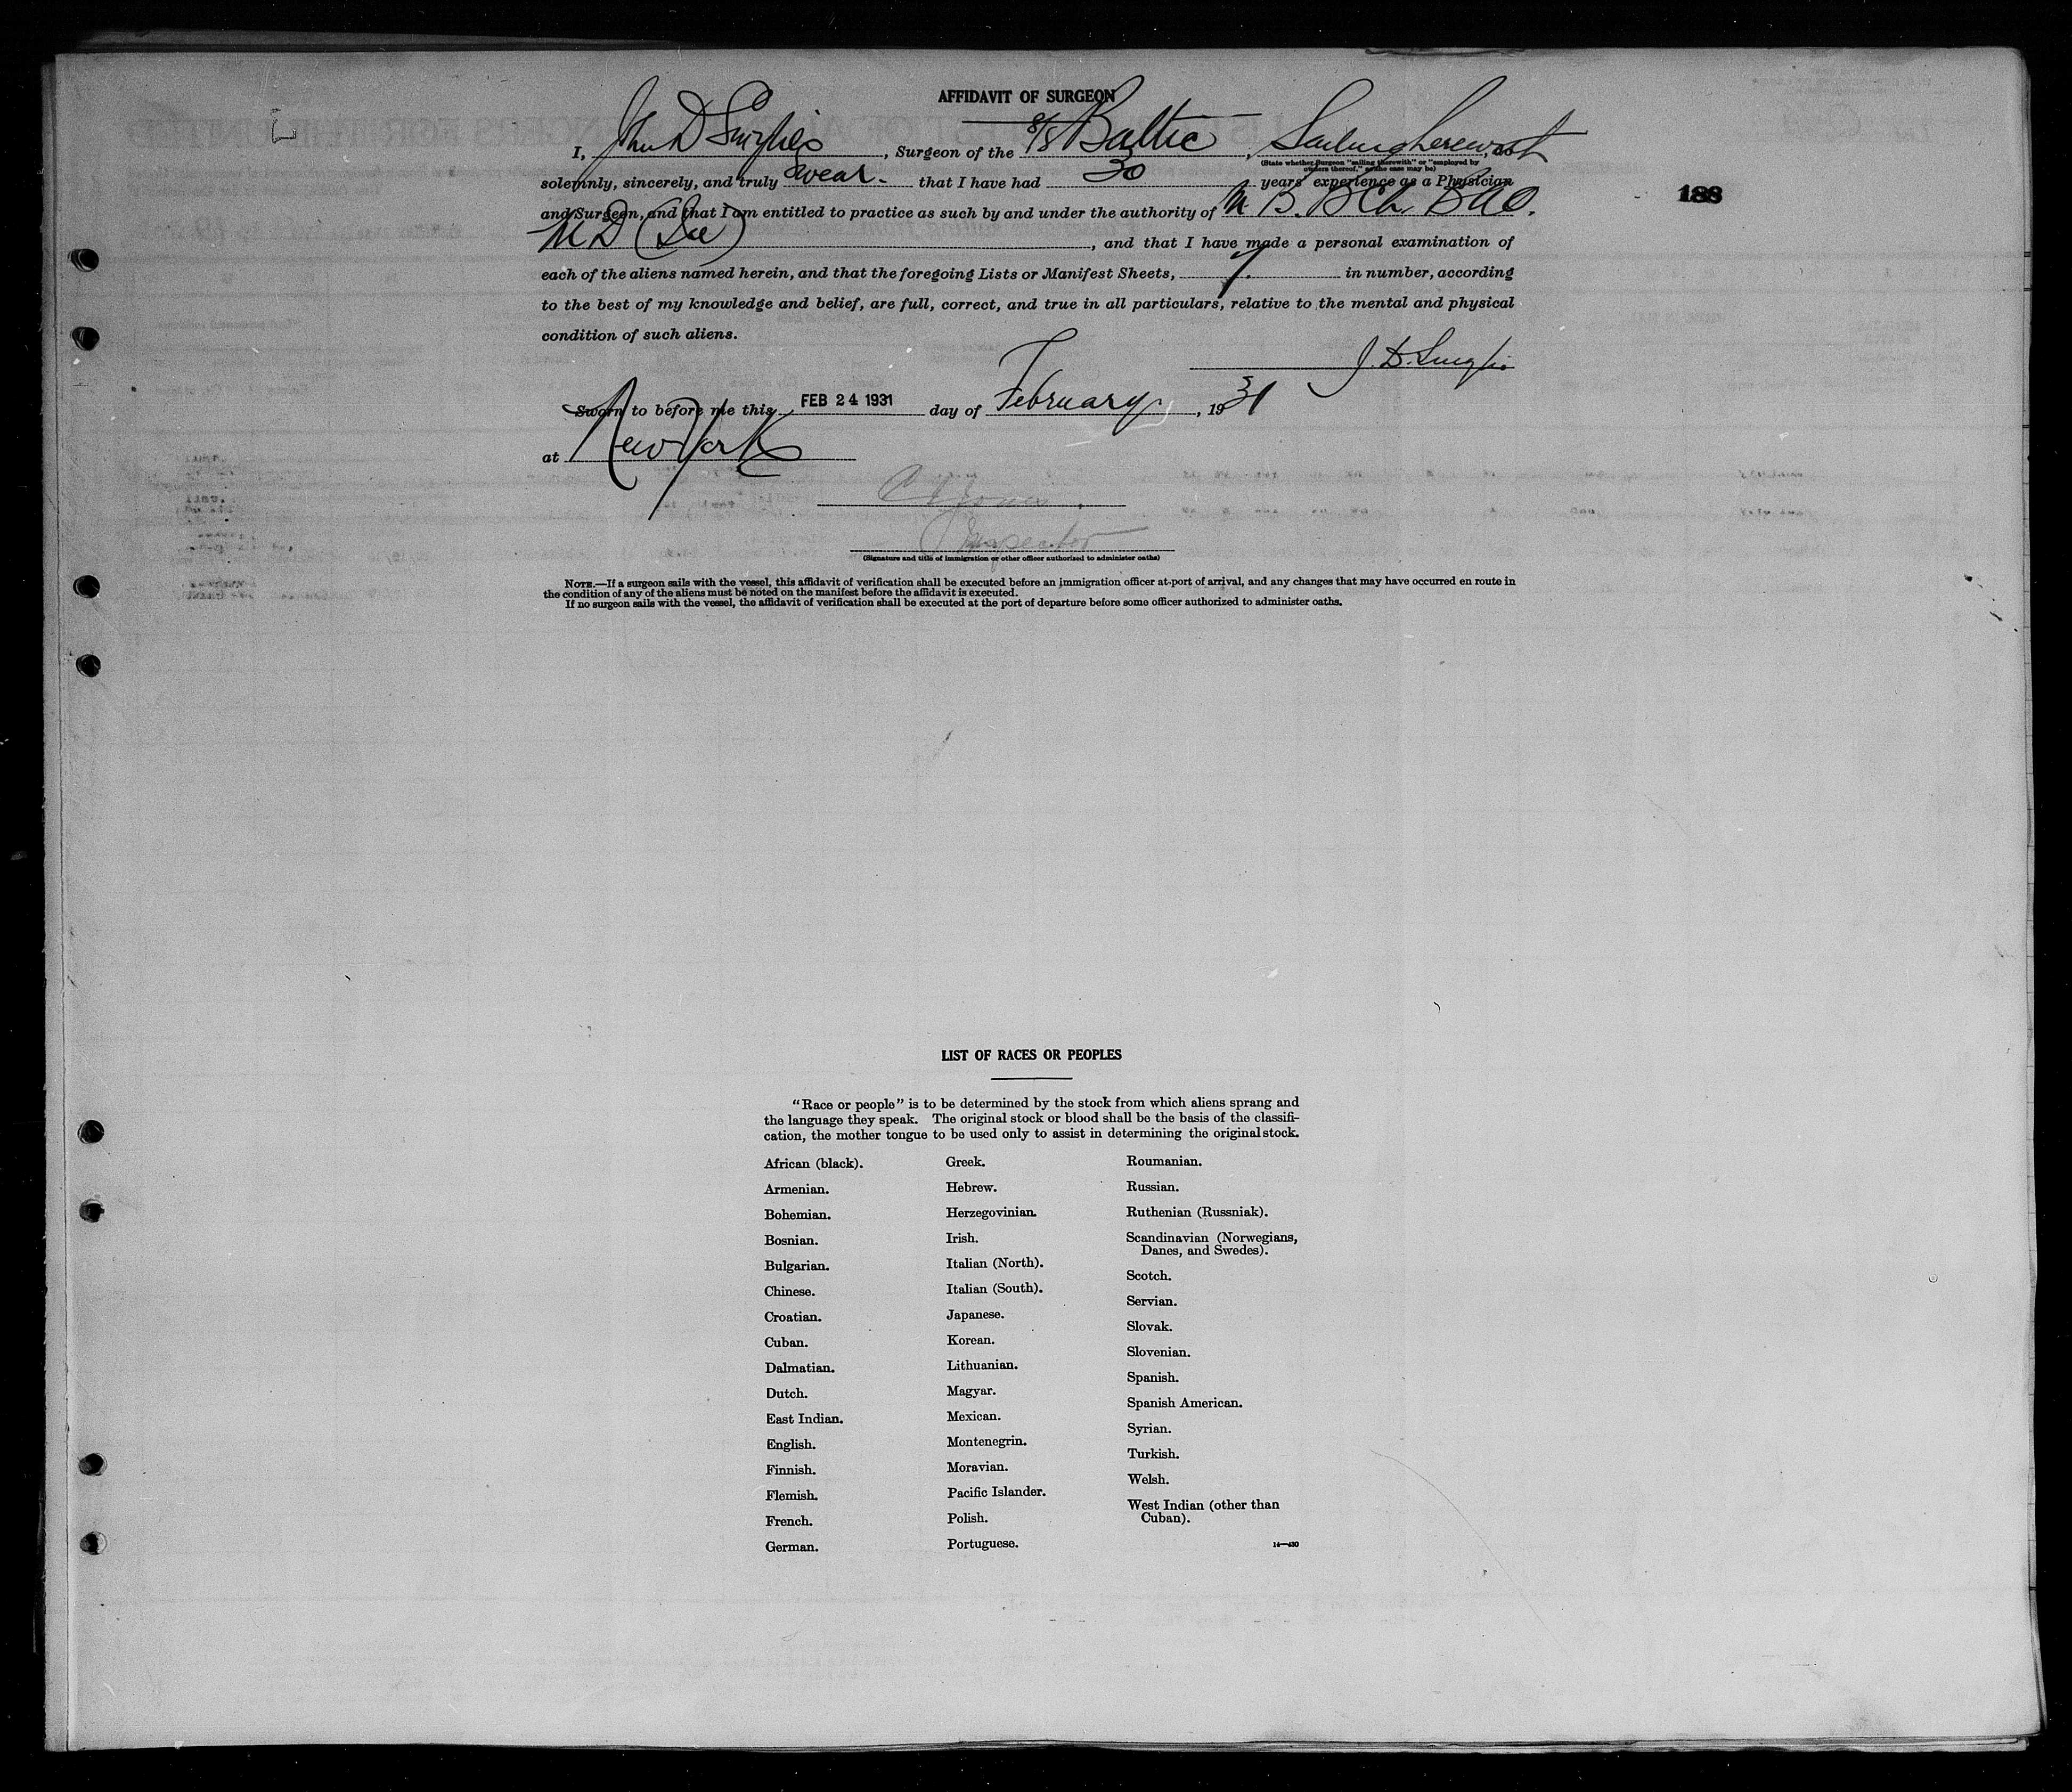 AFFIDAVIT OF SURGEON
I, John D , Surgeon of the S/S Baltic, Sailing therewith, do
(State whether Surgeon "sailing therewith" or "employed by
owners thereof," as the case may be)
solemnly, sincerely, and truly swear. that I have had 30 years' experience as a Physician
and Surgeon, and that I am entitled to practice as such by and under the authority of M B. B Ch. B A O.
M D , and that I have made a personal examination of
each of the aliens named herein, and that the foregoing Lists or Manifest Sheets, in number, according
to the best of my knowledge and belief, are full, correct, and true in all particulars, relative to the mental and physical
condition of such aliens.
J. D.
Sworn to before me this FEB 24 1931 day of February, 1931
at New York
Inspector
(Signature and title of immigration or other officer authorized to administer oaths)
NOTE.—If a surgeon sails with the vessel, this affidavit of verification shall be executed before an immigration officer at port of arrival, and any changes that may have occurred en route in
the condition of any of the aliens must be noted on the manifest before the affidavit is executed.
If no surgeon sails with the vessel, the affidavit of verification shall be executed at the port of departure before some officer authorized to administer oaths.
188
LIST OF RACES OR PEOPLES
"Race or people" is to be determined by the stock from which aliens sprang and
the language they speak. The original stock or blood shall be the basis of the classifi-
cation, the mother tongue to be used only to assist in determining the original stock.
African (black).
Armenian.
Bohemian.
Bosnian.
Bulgarian.
Chinese.
Croatian.
Cuban.
Dalmatian.
Dutch.
East Indian.
English.
Finnish.
Flemish.
French.
German.
Greek.
Hebrew.
Herzegovinian.
Irish.
Italian (North).
Italian (South).
Japanese.
Korean.
Lithuanian.
Magyar.
Mexican.
Montenegrin.
Moravian.
Pacific Islander.
Polish.
Portuguese.
Roumanian.
Russian.
Ruthenian (Russniak).
Scandinavian (Norwegians,
Danes, and Swedes).
Scotch.
Servian.
Slovak.
Slovenian.
Spanish.
Spanish American.
Syrian.
Turkish.
Welsh.
West Indian (other than
Cuban).
14—430